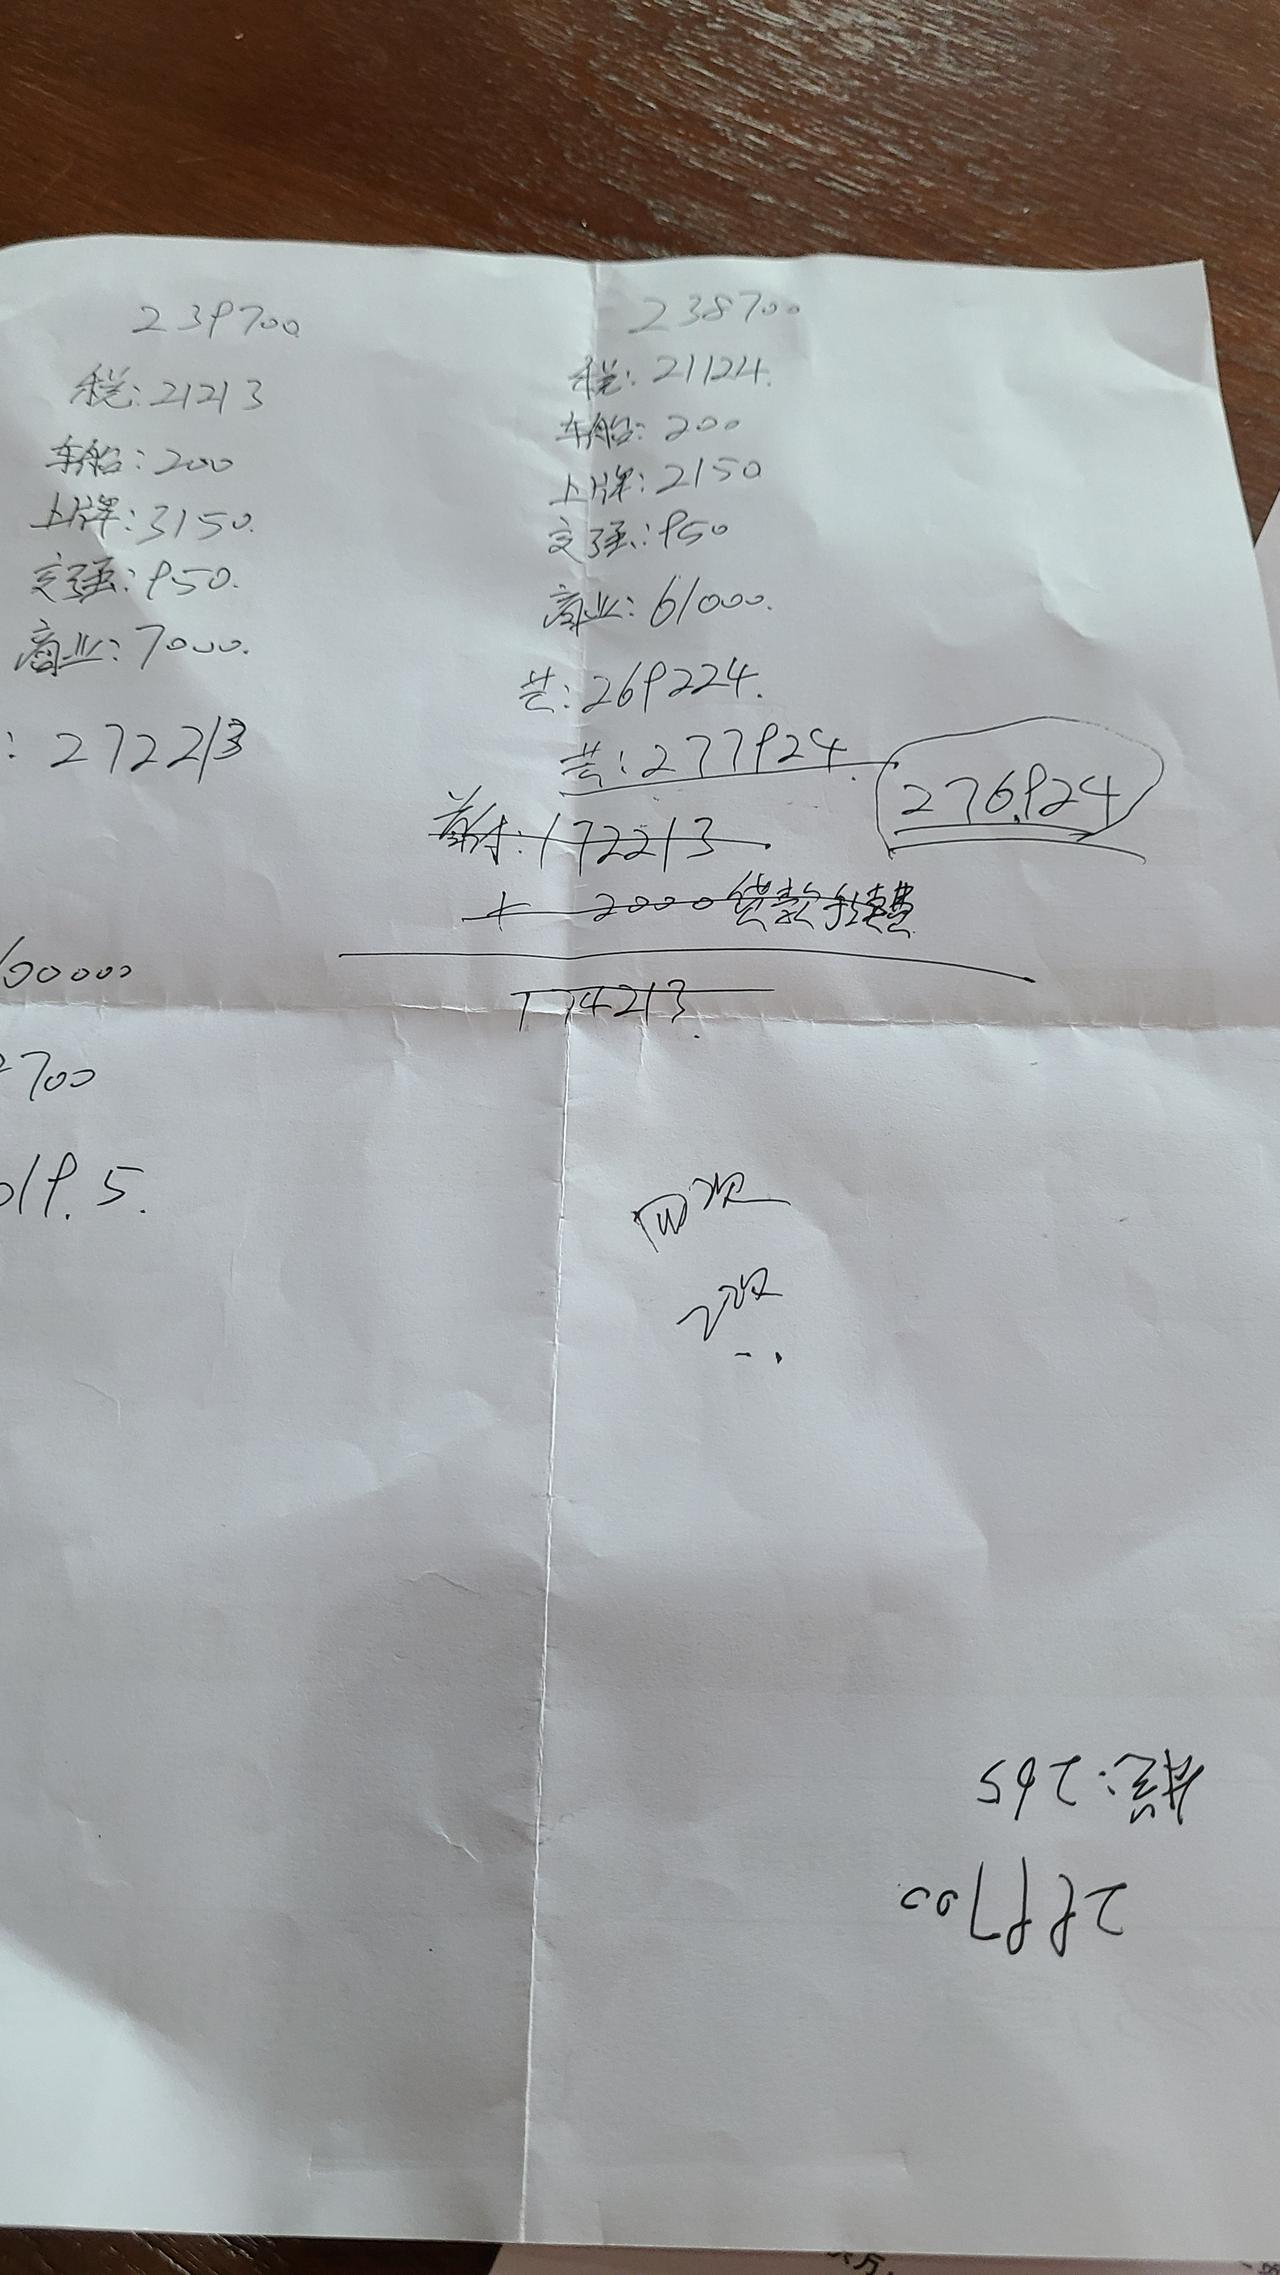 239700
税:21213
车船:200
上牌:3150.
交强:950.
商业:7000.
:272213
100000
700
019.5.
238700
税:21124.
车船:200
上牌:2150
交强:950
商业:61000.
共:269224.
共:277924.
276924
首付:172213
+ 2000贷款手续费
174213.
四次
2次
265